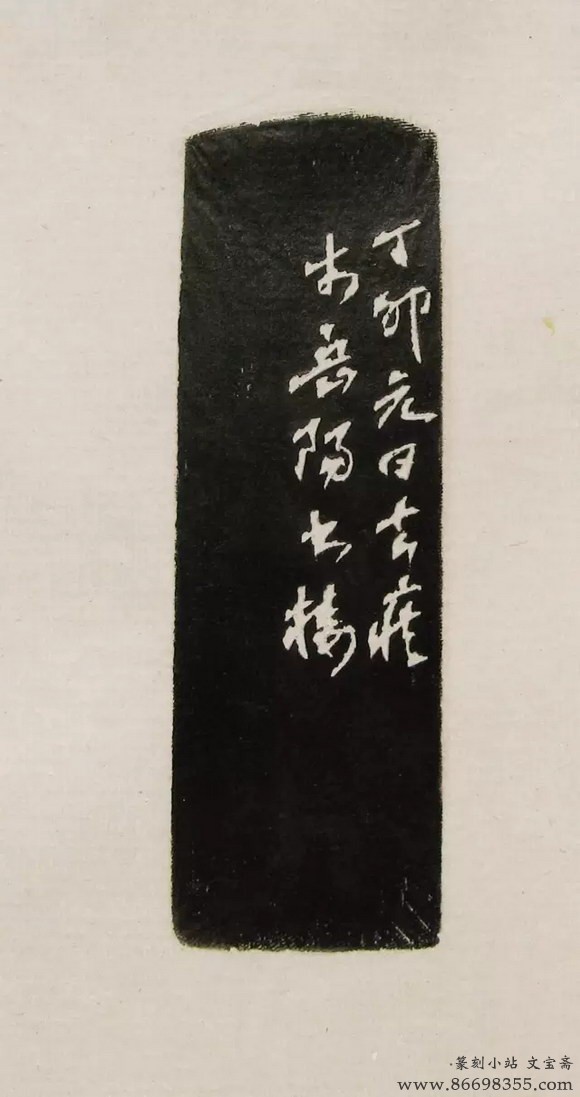 丁卯元日去疾
岳陽樓
篆刻小站 文宝斋
www.86698355.com